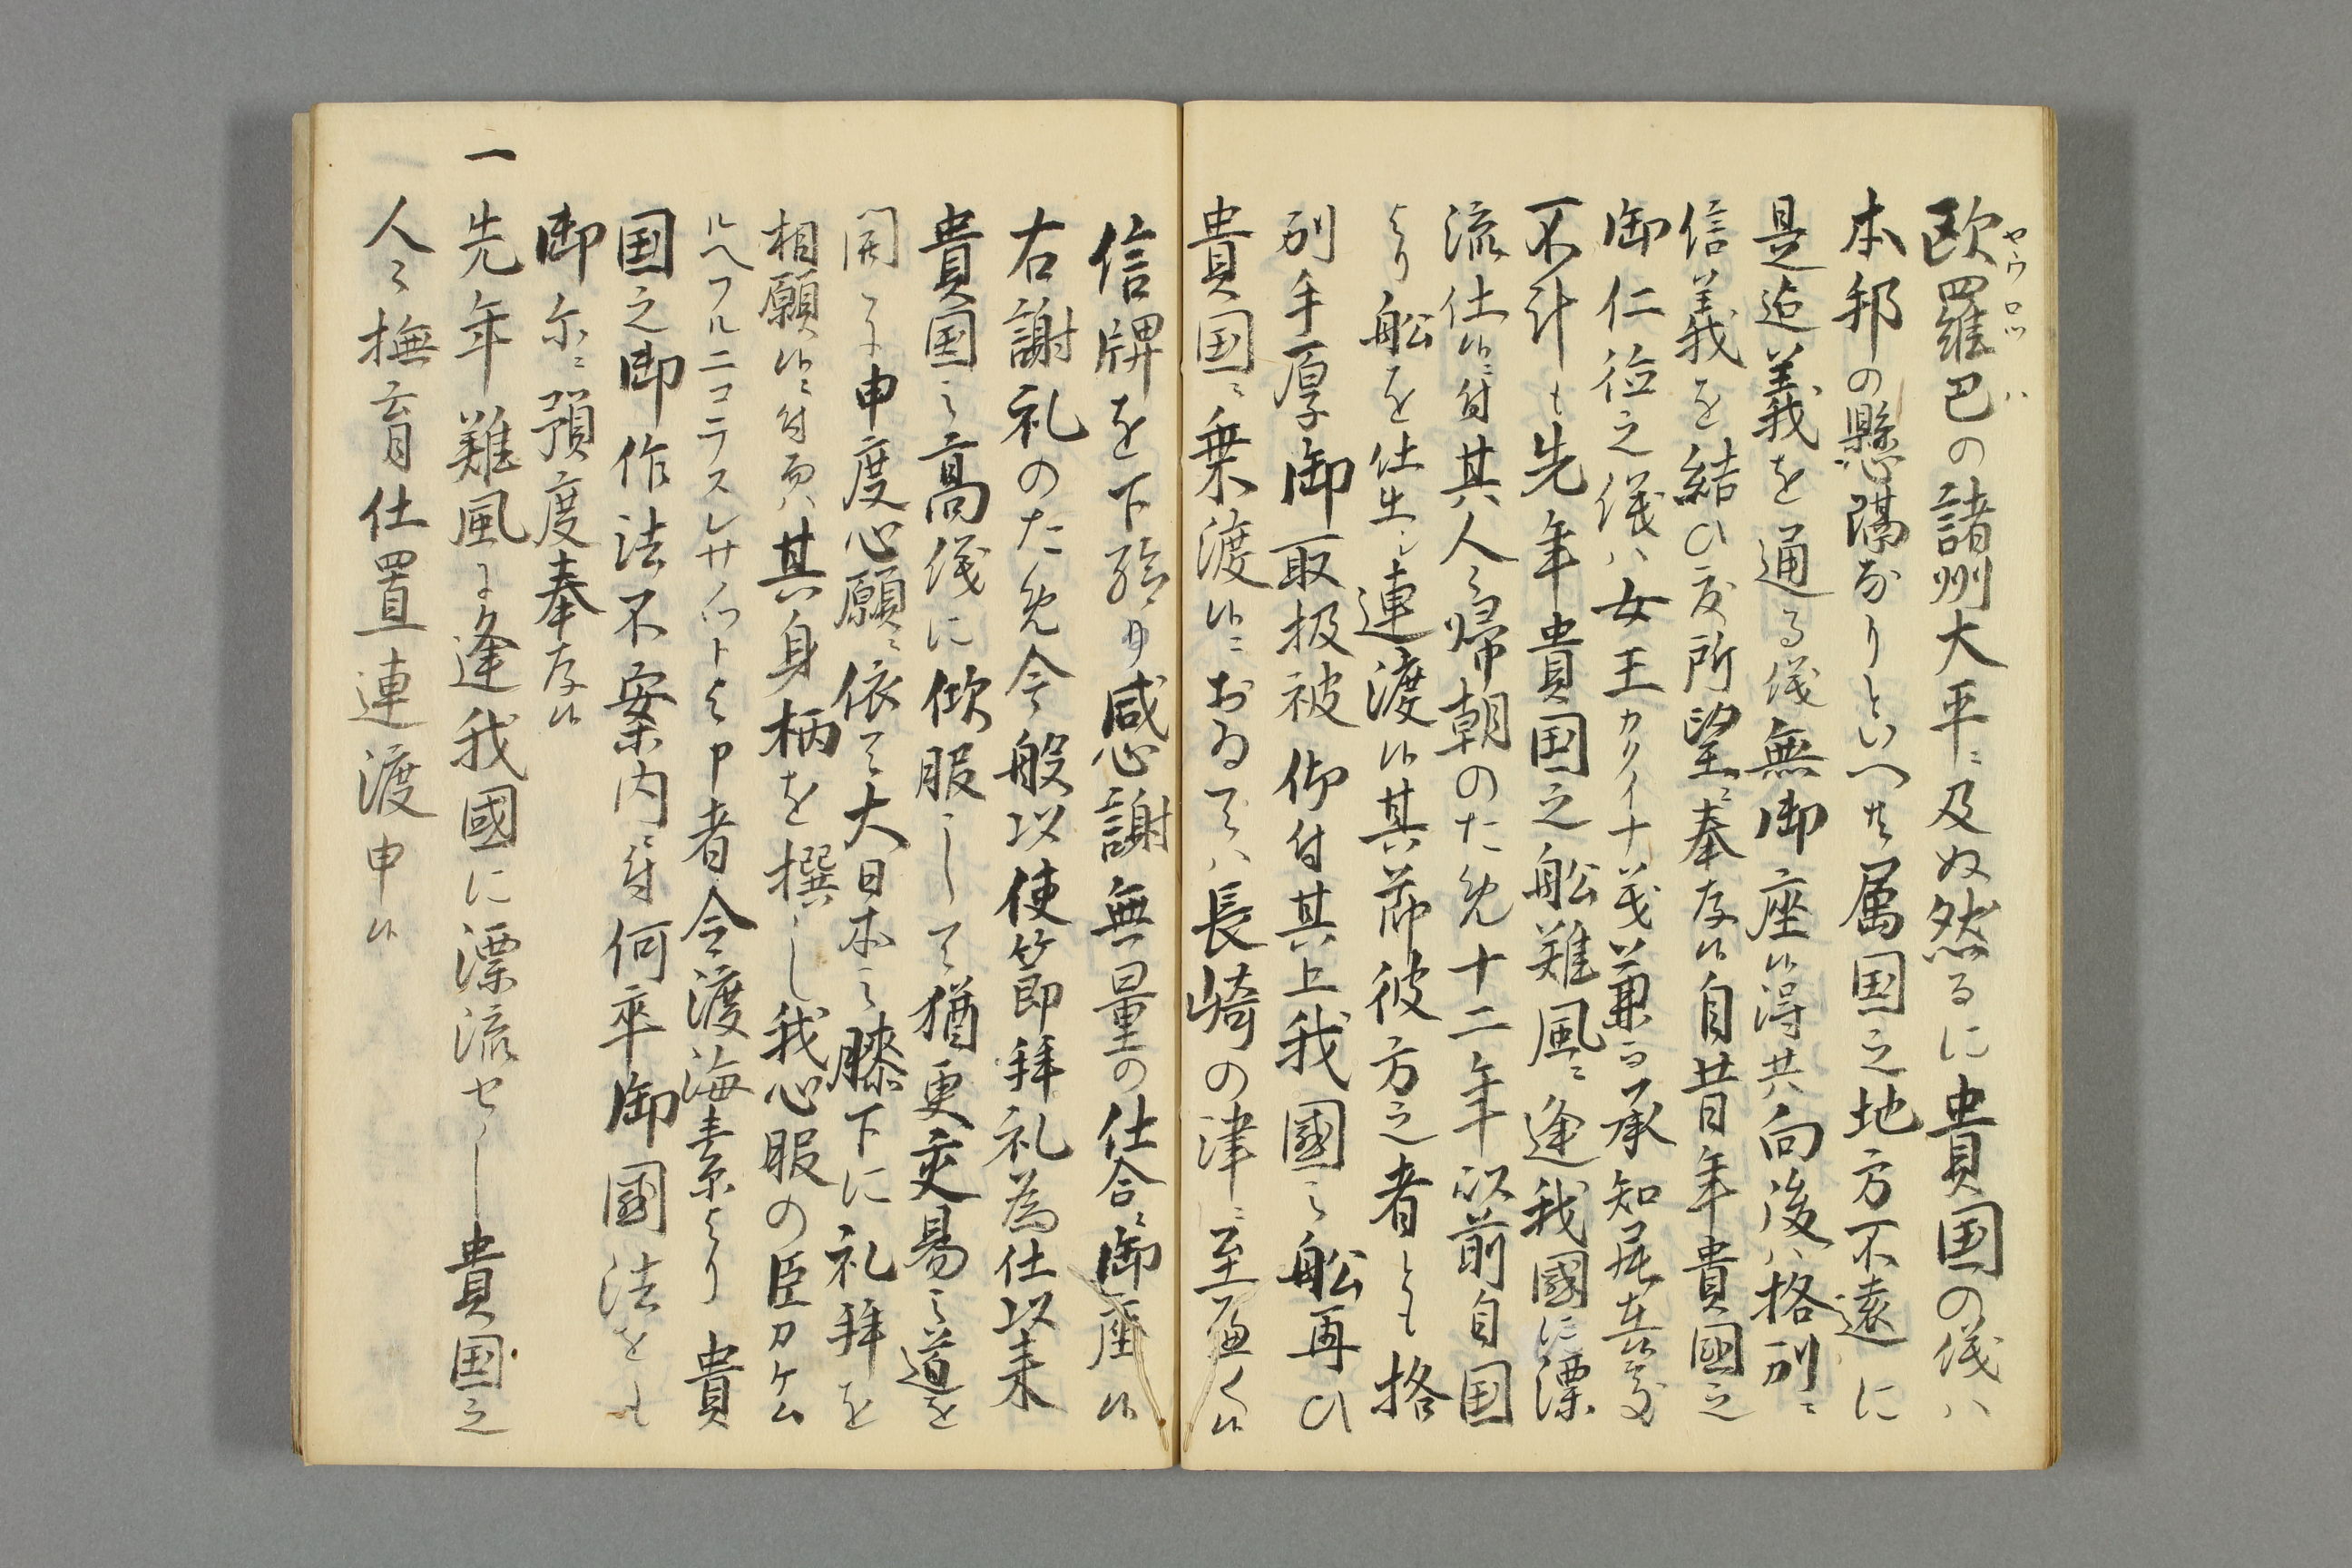 欧羅巴の諸州大平ニ及ぬ然るに貴国の儀ハ
ヤウロツハ
本邦の懸隔なりといへ共属国之地方不遠に
是迄義を通る儀無御座候得共向後ハ格別ニ
信義を結ひ度所望ニ奉存候自昔年貴國之
御仁徳之儀ハ女王カタリイナ義兼而承知居在候処
不計も先年貴国之舩難風ニ逢我國に漂
流仕候ニ付其人々帰朝のため十二年以前自国
より舩を仕出シ連渡候其節彼方之者とも格
別手厚御取扱被仰付其上我國之舩再ひ
貴国ニ乗渡候ニおゐてハ長崎の津ニ至るへく候
信牌を下給り感心謝無量の仕合ニ御座候
右謝礼のため今般以使節拝礼為仕以来
貴国之高儀に倣服して猶更交易之道を
開きに申度心願ニ依て大日本之膝下に礼拝を
相願候ニ付而ハ其身柄を撰し我心服の臣カケム
ルヘフルニコラスレサノットと申者令渡海素より貴
国之御作法不案内ニ付何卒御國法をも
御示ニ預度奉存候
一先年難風に逢我國に漂流せし貴国之
人々撫育仕置連渡申候